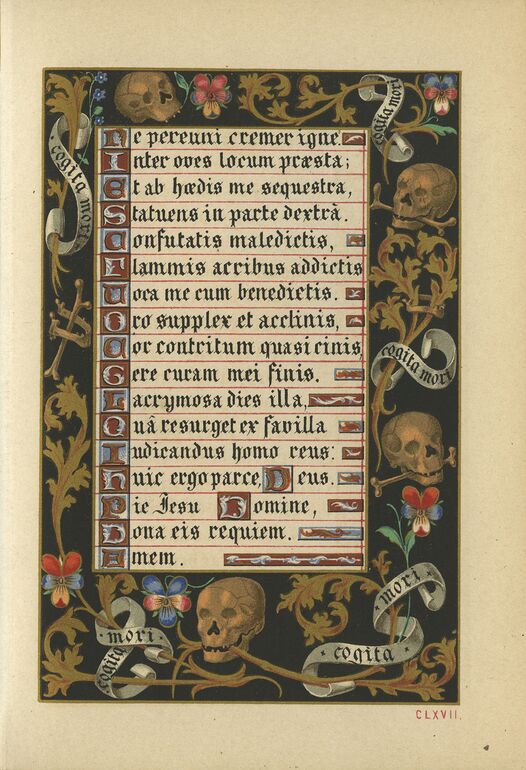 cogita mori
cogita mori
Ne perenni cremer igne.
Inter oves locum præsta;
Et ab hædis me sequestra,
Statuens in parte dextrâ.
Confutatis maledictis,
Flammis acribus addictis
Voca me cum benedictis.
Oro supplex et acclinis,
Cor contritum quasi cinis,
Gere curam mei finis.
Lacrymosa dies illa,
Quâ resurget ex favilla
Iudicandus homo reus:
Huic ergo parce, Deus.
Pie Jesu Domine,
Dona eis requiem.
Amen.
cogita mori
cogita mori
cogita mori
CLXVII.